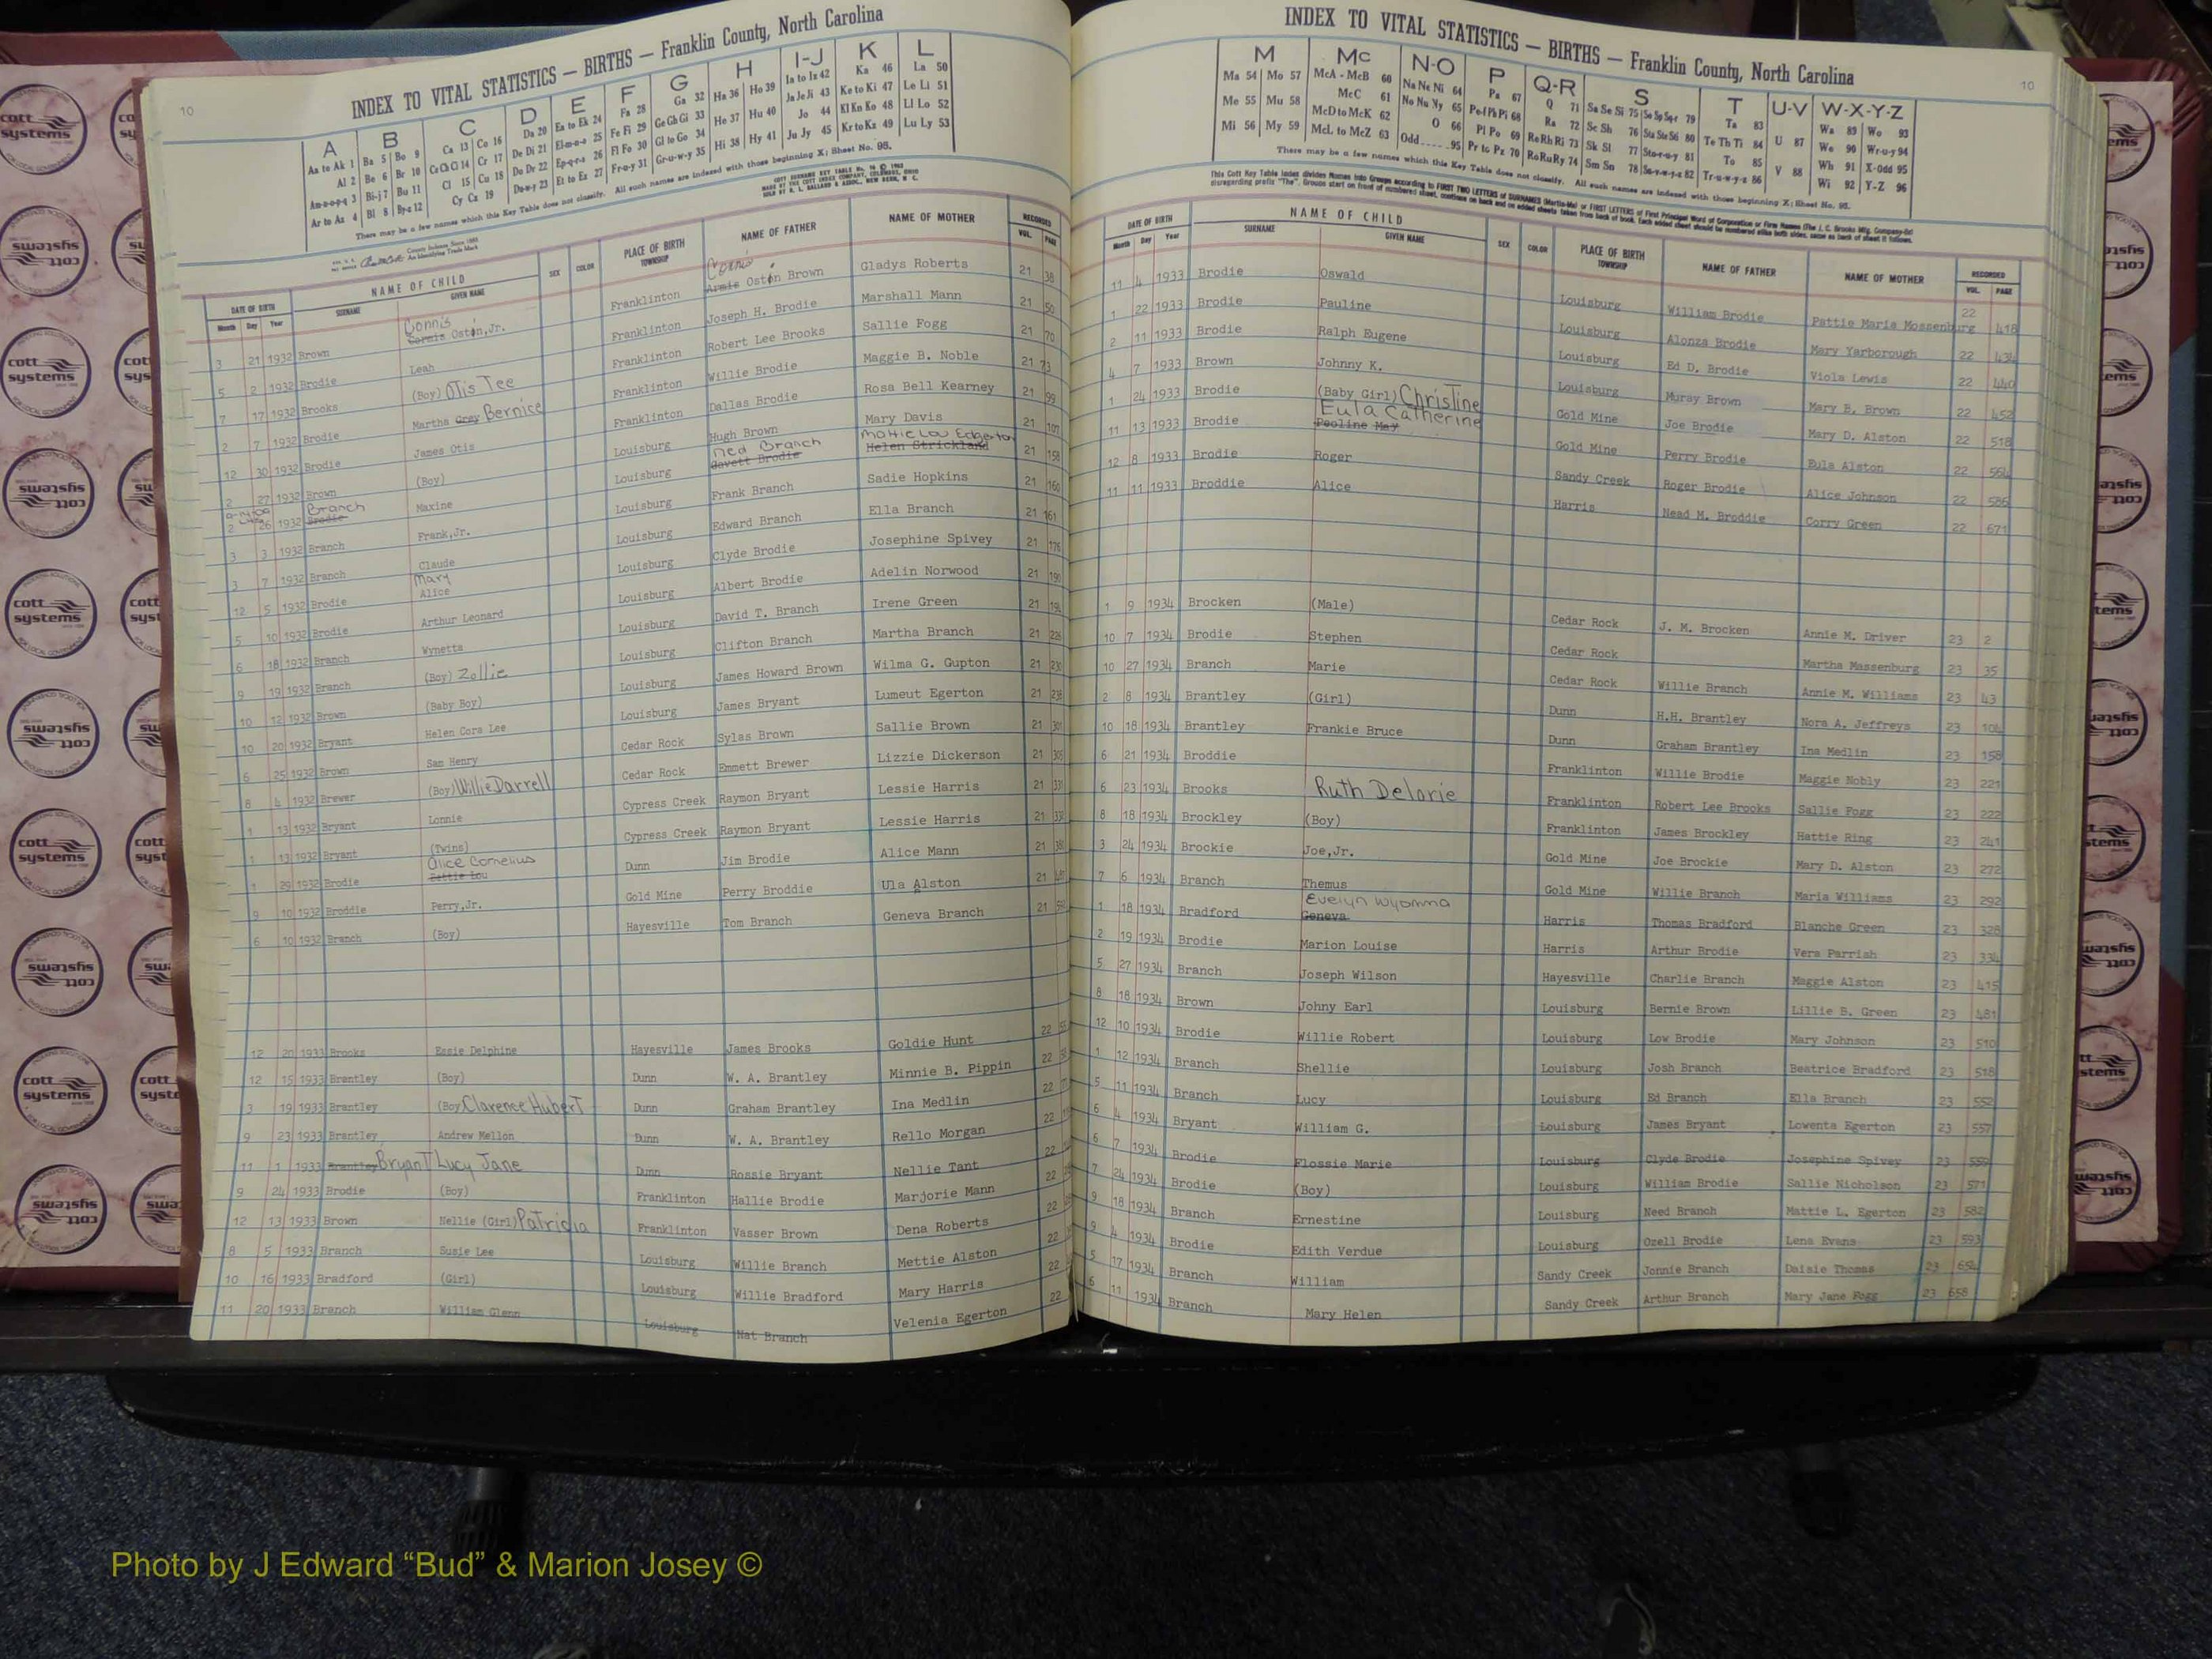 10
INDEX TO VITAL STATISTICS — BIRTHS — Franklin County, North Carolina
A B C D E F G H I-J K L
Aa to Ak 1 Ba 5 Bo 9 Ca 13 Co 16 Da 20 Ea to Ek 24 Fa 28 Ga 32 Ha 36 Ho 39 Ia to Iz 42 Ka 46 La 50
Al 2 Be 6 Br 10 Ce Ch Ci 14 Cr 17 De Di 21 El-m-n-o 25 Fe Fi 29 Ge Gh Gi 33 He 37 Hu 40 Ja Je Ji 43 Ke to Ki 47 Le Li 51
Am-n-o-p-q 3 Bi-j 7 Bu 11 Cl 15 Cu 18 Do Dr 22 Ep-q-r-s 26 Fl Fo 30 Gl to Go 34 Hi 38 Hy 41 Jo 44 Kl Kn Ko 48 Ll Lo 52
Ar to Az 4 Bl 8 By-z 12 Cy Cz 19 Du-w-y 23 Et to Ez 27 Fr-u-y 31 Gr-u-w-y 35 Ju Jy 45 Kr to Kz 49 Lu Ly 53
There may be a few names which this Key Table does not classify. All such names are indexed with those beginning X; Sheet No. 95.
DATE OF BIRTH NAME OF CHILD SEX COLOR PLACE OF BIRTH NAME OF FATHER NAME OF MOTHER RECORDED
Month Day Year SURNAME GIVEN NAME TOWNSHIP VOL. PAGE
3 21 1932 Brown Connis Oston, Jr. Franklinton Connis Armis Oston Brown Gladys Roberts 21 38
5 2 1932 Brodie Leah Franklinton Joseph H. Brodie Marshall Mann 21 50
7 17 1932 Brooks (Boy) Otis Tee Franklinton Robert Lee Brooks Sallie Fogg 21 70
2 7 1932 Brodie Martha Gray Bernice Franklinton Willie Brodie Maggie B. Noble 21 73
12 30 1932 Brodie James Otis Franklinton Dallas Brodie Rosa Bell Kearney 21 99
2 27 1932 Brown (Boy) Louisburg Hugh Brown Mary Davis 21 107
2 26 1932 Branch Brodie Maxine Louisburg Ned Branch Javett Brodie Mattie Lou Edgerton Helen Strickland 21 158
3 3 1932 Branch Frank, Jr. Louisburg Frank Branch Sadie Hopkins 21 160
3 7 1932 Branch Claude Louisburg Edward Branch Ella Branch 21 161
12 5 1932 Brodie Mary Alice Louisburg Clyde Brodie Josephine Spivey 21 176
5 10 1932 Brodie Arthur Leonard Louisburg Albert Brodie Adelin Norwood 21 190
6 18 1932 Branch Wynetta Louisburg David T. Branch Irene Green 21 194
9 19 1932 Branch (Boy) Zollie Louisburg Clifton Branch Martha Branch 21 226
10 12 1932 Brown (Baby Boy) Louisburg James Howard Brown Wilma G. Gupton 21 230
10 20 1932 Bryant Helen Cora Lee Louisburg James Bryant Lumeut Egerton 21 238
6 25 1932 Brown Sam Henry Cedar Rock Sylas Brown Sallie Brown 21 301
8 4 1932 Brewer (Boy) Willie Darrell Cedar Rock Emmett Brewer Lizzie Dickerson 21 305
1 13 1932 Bryant Lonnie Cypress Creek Raymon Bryant Lessie Harris 21 331
1 13 1932 Bryant (Twins) Cypress Creek Raymon Bryant Lessie Harris 21 332
1 29 1932 Brodie Alice Cornelius Pattie Lou Dunn Jim Brodie Alice Mann 21
9 10 1932 Broddie Perry, Jr. Gold Mine Perry Broddie Ula Alston 21
6 10 1932 Branch (Boy) Hayesville Tom Branch Geneva Branch 21
12 20 1933 Brooks Essie Delphine Hayesville James Brooks Goldie Hunt 22
12 15 1933 Brantley (Boy) Dunn W. A. Brantley Minnie B. Pippin 22
3 19 1933 Brantley (Boy) Clarence Hubert Dunn Graham Brantley Ina Medlin 22
9 23 1933 Brantley Andrew Mellon Dunn W. A. Brantley Rello Morgan 22
11 1 1933 Brantley Bryant Lucy Jane Dunn Rossie Bryant Nellie Tant 22
9 24 1933 Brodie (Boy) Franklinton Hallie Brodie Marjorie Mann 22
12 13 1933 Brown Nellie (Girl) Patricia Franklinton Vasser Brown Dena Roberts 22
8 5 1933 Branch Susie Lee Louisburg Willie Branch Mettie Alston 22
10 16 1933 Bradford (Girl) Louisburg Willie Bradford Mary Harris 22
11 20 1933 Branch William Glenn Louisburg Nat Branch Velenia Egerton 22
INDEX TO VITAL STATISTICS — BIRTHS — Franklin County, North Carolina
10
M Mc N-O P Q-R S T U-V W-X-Y-Z
Ma 54 Mo 57 McA - McB 60 Na Ne Ni 64 Pa 67 Q 71 Sa Se Si 75 So Sp Sq-r 79 Ta 83 Wa 89 Wo 93
Me 55 Mu 58 McC 61 No Nu Ny 65 Pe-f Ph Pi 68 Ra 72 Sc Sh 76 Sta Ste Sti 80 Te Th Ti 84 U 87 We 90 Wr-u-y 94
Mi 56 My 59 McD to McK 62 O 66 Pl Po 69 Re Rh Ri 73 Sk Sl 77 Sto-r-u-y 81 To 85 Wh 91 X-Odd 95
McL to McZ 63 Odd 95 Pr to Pz 70 Ro Ru Ry 74 Sm Sn 78 Su-v-w-y-z 82 Tr-u-w-y-z 86 V 88 Wi 92 Y-Z 96
There may be a few names which this Key Table does not classify. All such names are indexed with those beginning X; Sheet No. 95.
DATE OF BIRTH NAME OF CHILD SEX COLOR PLACE OF BIRTH NAME OF FATHER NAME OF MOTHER RECORDED
Month Day Year SURNAME GIVEN NAME TOWNSHIP VOL. PAGE
11 4 1933 Brodie Oswald Louisburg William Brodie Pattie Marie Mossenburg 22 418
1 22 1933 Brodie Pauline Louisburg Alonza Brodie Mary Yarborough 22 434
2 11 1933 Brodie Ralph Eugene Louisburg Ed D. Brodie Viola Lewis 22 440
4 7 1933 Brown Johnny K. Louisburg Muray Brown Mary E. Brown 22 452
1 24 1933 Brodie (Baby Girl) Christine Gold Mine Joe Brodie Mary D. Alston 22 518
11 13 1933 Brodie Eula Catherine Peoline May Gold Mine Perry Brodie Eula Alston 22 564
12 8 1933 Brodie Roger Sandy Creek Roger Brodie Alice Johnson 22 586
11 11 1933 Broddie Alice Harris Nead M. Broddie Corry Green 22 671
1 9 1934 Brocken (Male) Cedar Rock J. M. Brocken Annie M. Driver 23 2
10 7 1934 Brodie Stephen Cedar Rock Martha Massenburg 23 35
10 27 1934 Branch Marie Cedar Rock Willie Branch Annie M. Williams 23 43
2 8 1934 Brantley (Girl) Dunn H.H. Brantley Nora A. Jeffreys 23 104
10 18 1934 Brantley Frankie Bruce Dunn Graham Brantley Ina Medlin 23 158
6 21 1934 Broddie Franklinton Willie Brodie Maggie Nobly 23 221
6 23 1934 Brooks Ruth Delorie Franklinton Robert Lee Brooks Sallie Fogg 23 222
8 18 1934 Brockley (Boy) Franklinton James Brockley Hattie Ring 23 241
3 24 1934 Brockie Joe, Jr. Gold Mine Joe Brockie Mary D. Alston 23 272
7 6 1934 Branch Themus Gold Mine Willie Branch Maria Williams 23 292
1 18 1934 Bradford Evelyn Wyomma Geneva Harris Thomas Bradford Blanche Green 23 328
2 19 1934 Brodie Marion Louise Harris Arthur Brodie Vera Parrish 23 334
5 27 1934 Branch Joseph Wilson Hayesville Charlie Branch Maggie Alston 23 415
8 18 1934 Brown Johny Earl Louisburg Bernie Brown Lillie B. Green 23 481
12 10 1934 Brodie Willie Robert Louisburg Low Brodie Mary Johnson 23 510
1 12 1934 Branch Shellie Louisburg Josh Branch Beatrice Bradford 23 518
5 11 1934 Branch Lucy Louisburg Ed Branch Ella Branch 23 552
6 4 1934 Bryant William G. Louisburg James Bryant Lowenta Egerton 23 557
6 7 1934 Brodie Flossie Marie Louisburg Clyde Brodie Josephine Spivey 23 559
7 24 1934 Brodie (Boy) Louisburg William Brodie Sallie Nicholson 23 571
9 18 1934 Branch Ernestine Louisburg Need Branch Mattie L. Egerton 23 582
9 4 1934 Brodie Edith Verdue Louisburg Ozell Brodie Lena Evans 23 593
5 17 1934 Branch William Sandy Creek Jonnie Branch Daisie Thomas 23 654
6 11 1934 Branch Mary Helen Sandy Creek Arthur Branch Mary Jane Fogg 23 658
cott systems
Photo by J Edward “Bud” & Marion Josey ©